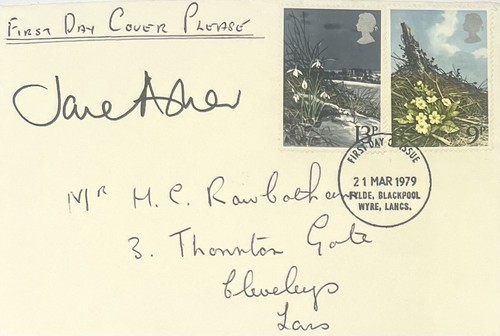 FIRST DAY COVER PLEASE
Jane Asher
13P
9P
FIRST DAY OF ISSUE
21 MAR 1979
FYLDE, BLACKPOOL
WYRE, LANCS.
Mr H. C. Rowbotham
3. Thornton Gate
Cleveleys
Lans